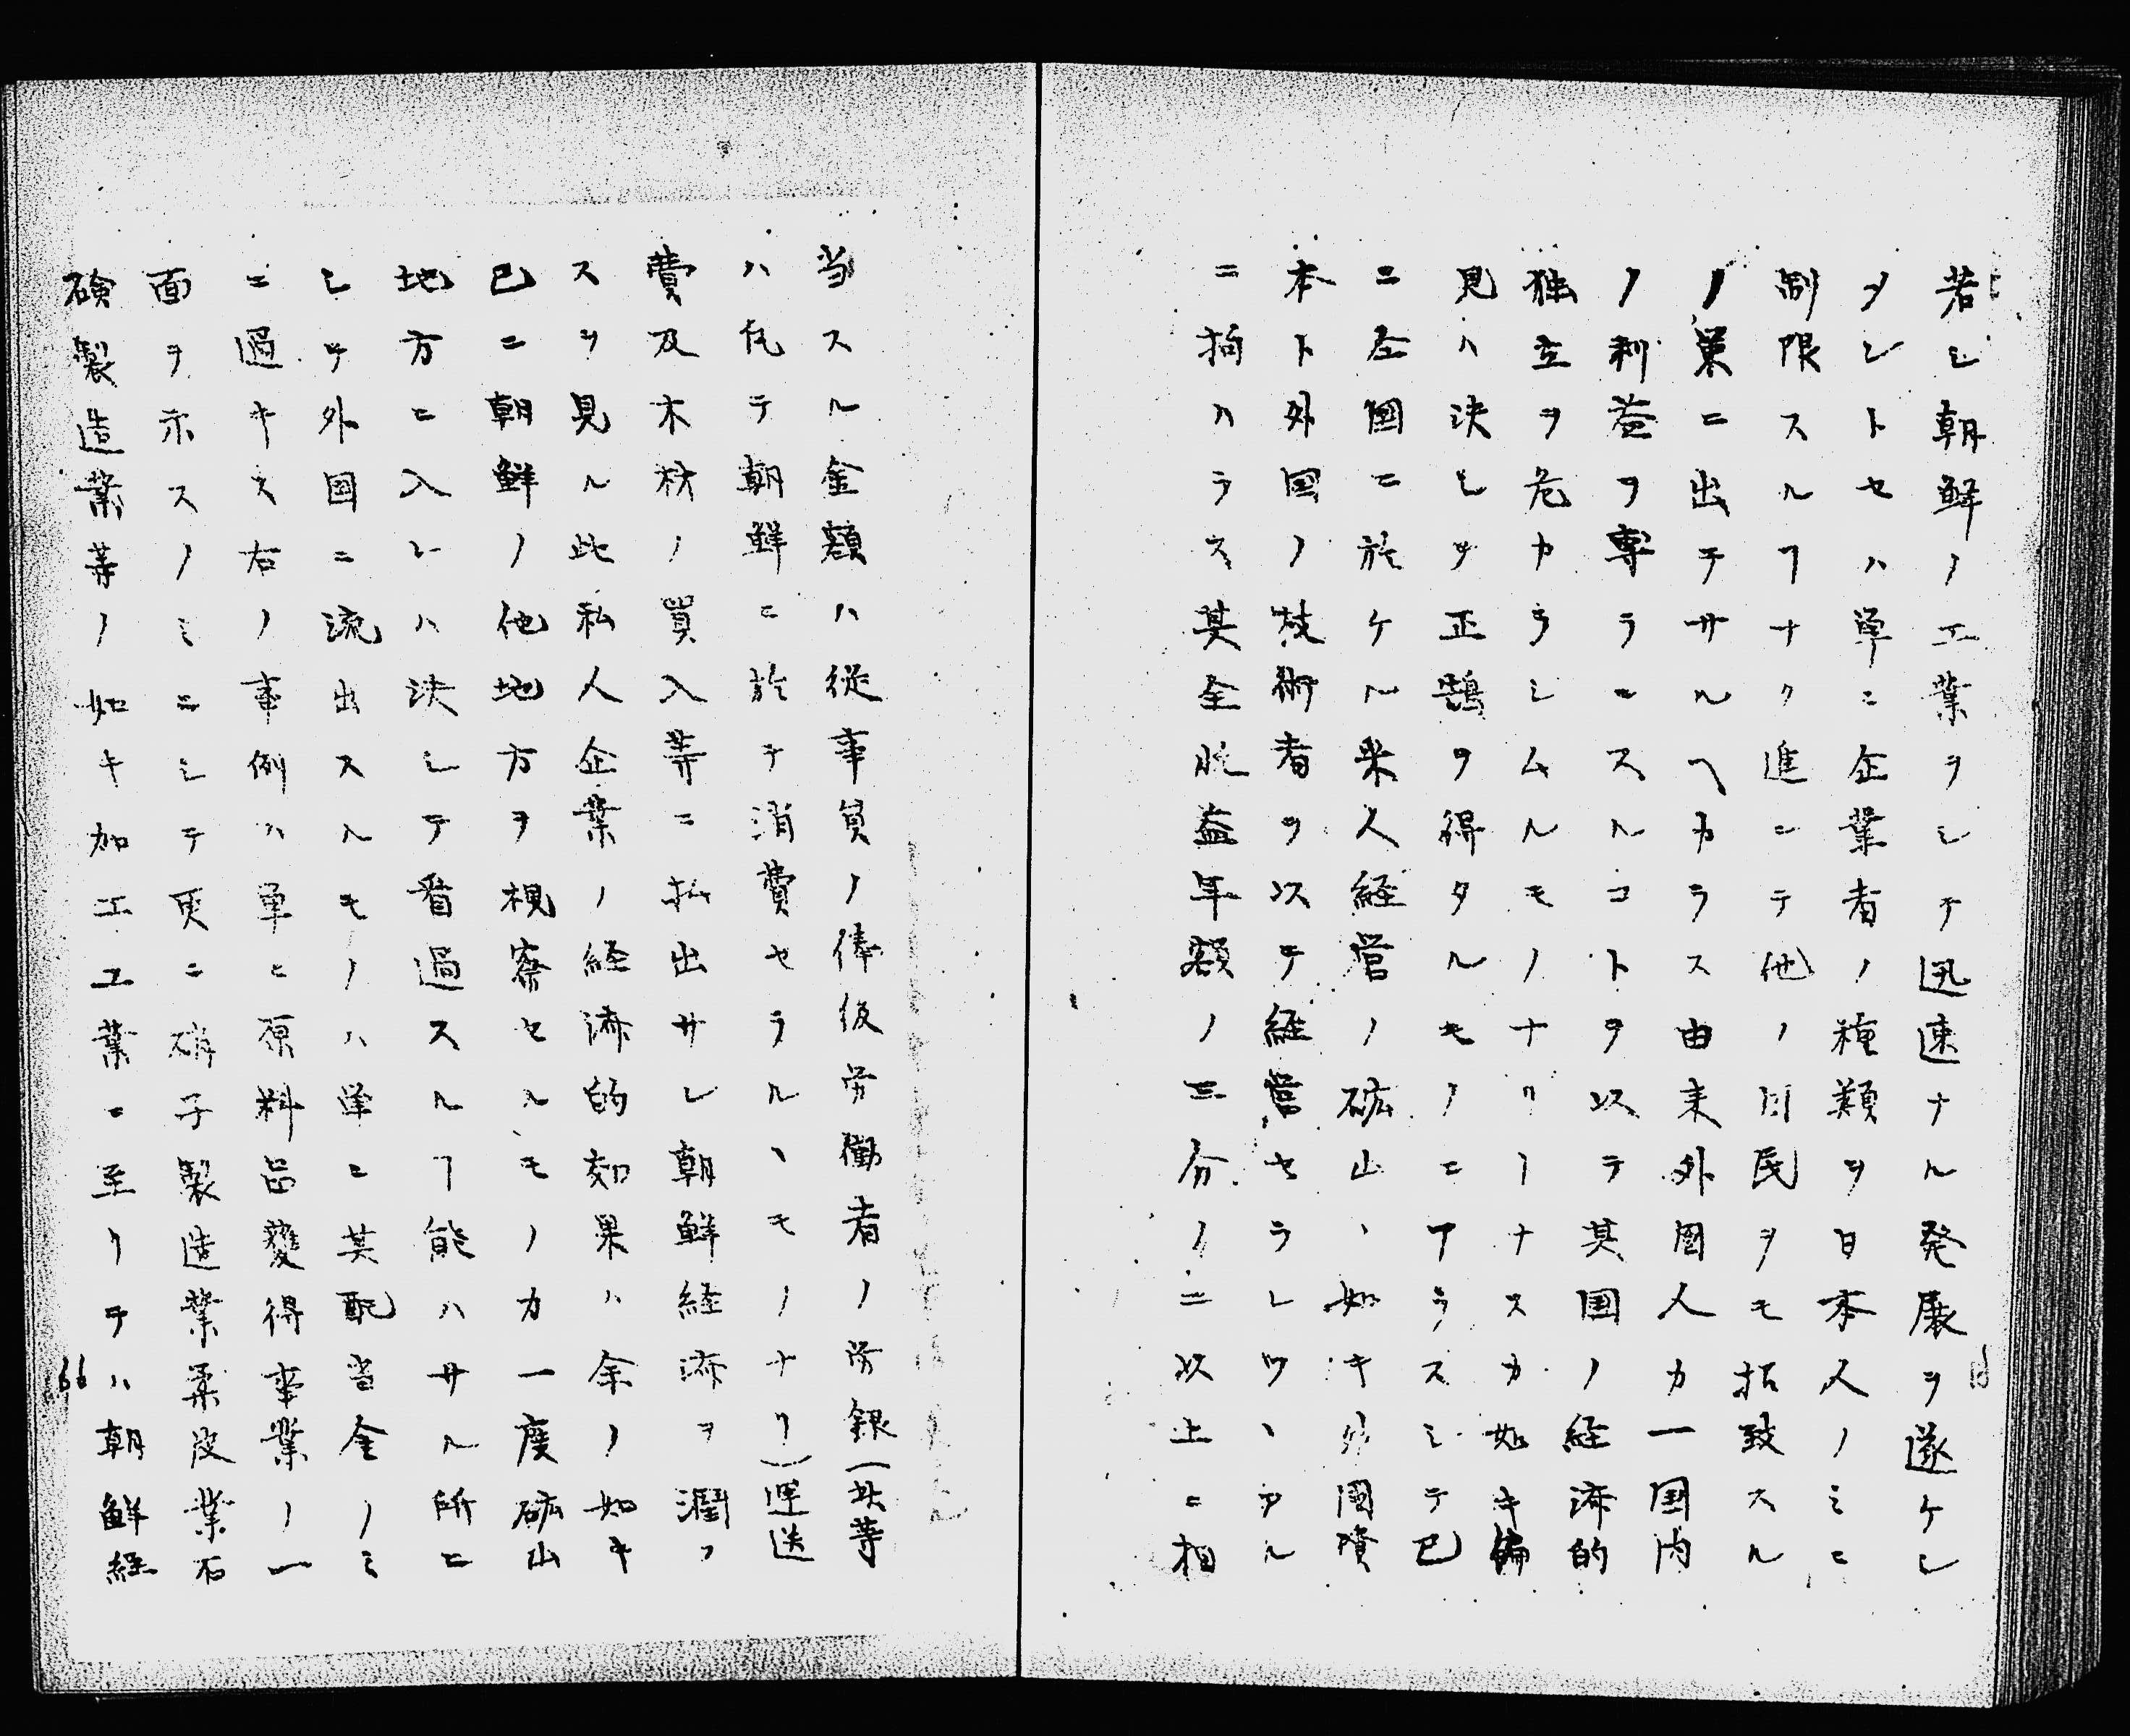 若シ朝鮮ノ工業ヲシテ迅速ナル発展ヲ遂ケシ
メントセハ単ニ企業者ノ種類ヲ日本人ノミニ
制限スルヿナク進ンテ他ノ国民ヲモ招致スル
ノ策ニ出テサルヘカラス由来外国人カ一国内
ノ利益ヲ専ラニスルコトヲ以テ其国ノ経済的
独立ヲ危カラシムルモノナリトナスカ如キ偏
見ハ決シテ正鵠ヲ得タルモノニアラスシテ已
ニ全国ニ於ケル米人経営ノ砿山、如キ外国資
本ト外国ノ技術者ヲ以テ経営セラレツヽアル
ニ拘ハラス其全収益年額ノ三分ノ二以上ニ相
当スル金額ハ従事員ノ俸給労働者ノ労銀(此等
ハ凡テ朝鮮ニ於テ消費セラルヽモノナリ)運送
費及木材ノ買入等ニ払出サレ朝鮮経済ヲ潤フ
スヲ見ル此私人企業ノ経済的効果ハ余ノ如キ
已ニ朝鮮ノ他地方ヲ視察セルモノカ一度砿山
地方ニ入レハ決シテ看過スルヿ能ハサル所ニ
シテ外国ニ流出スルモノハ単ニ其配当金ノミ
ニ過キス右ノ事例ハ単ニ原料品獲得事業ノ一
面ヲ示スノミニシテ更ニ硝子製造業柔皮業石
鹸製造業等ノ如キ加工工業ニ至リテハ朝鮮経
66